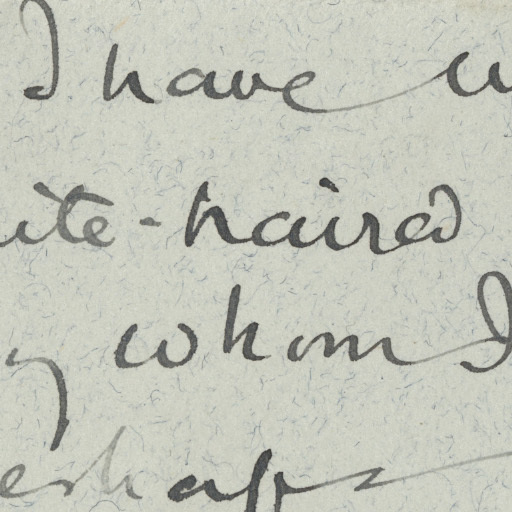 I have
ite-haired
y whom I
erhaps